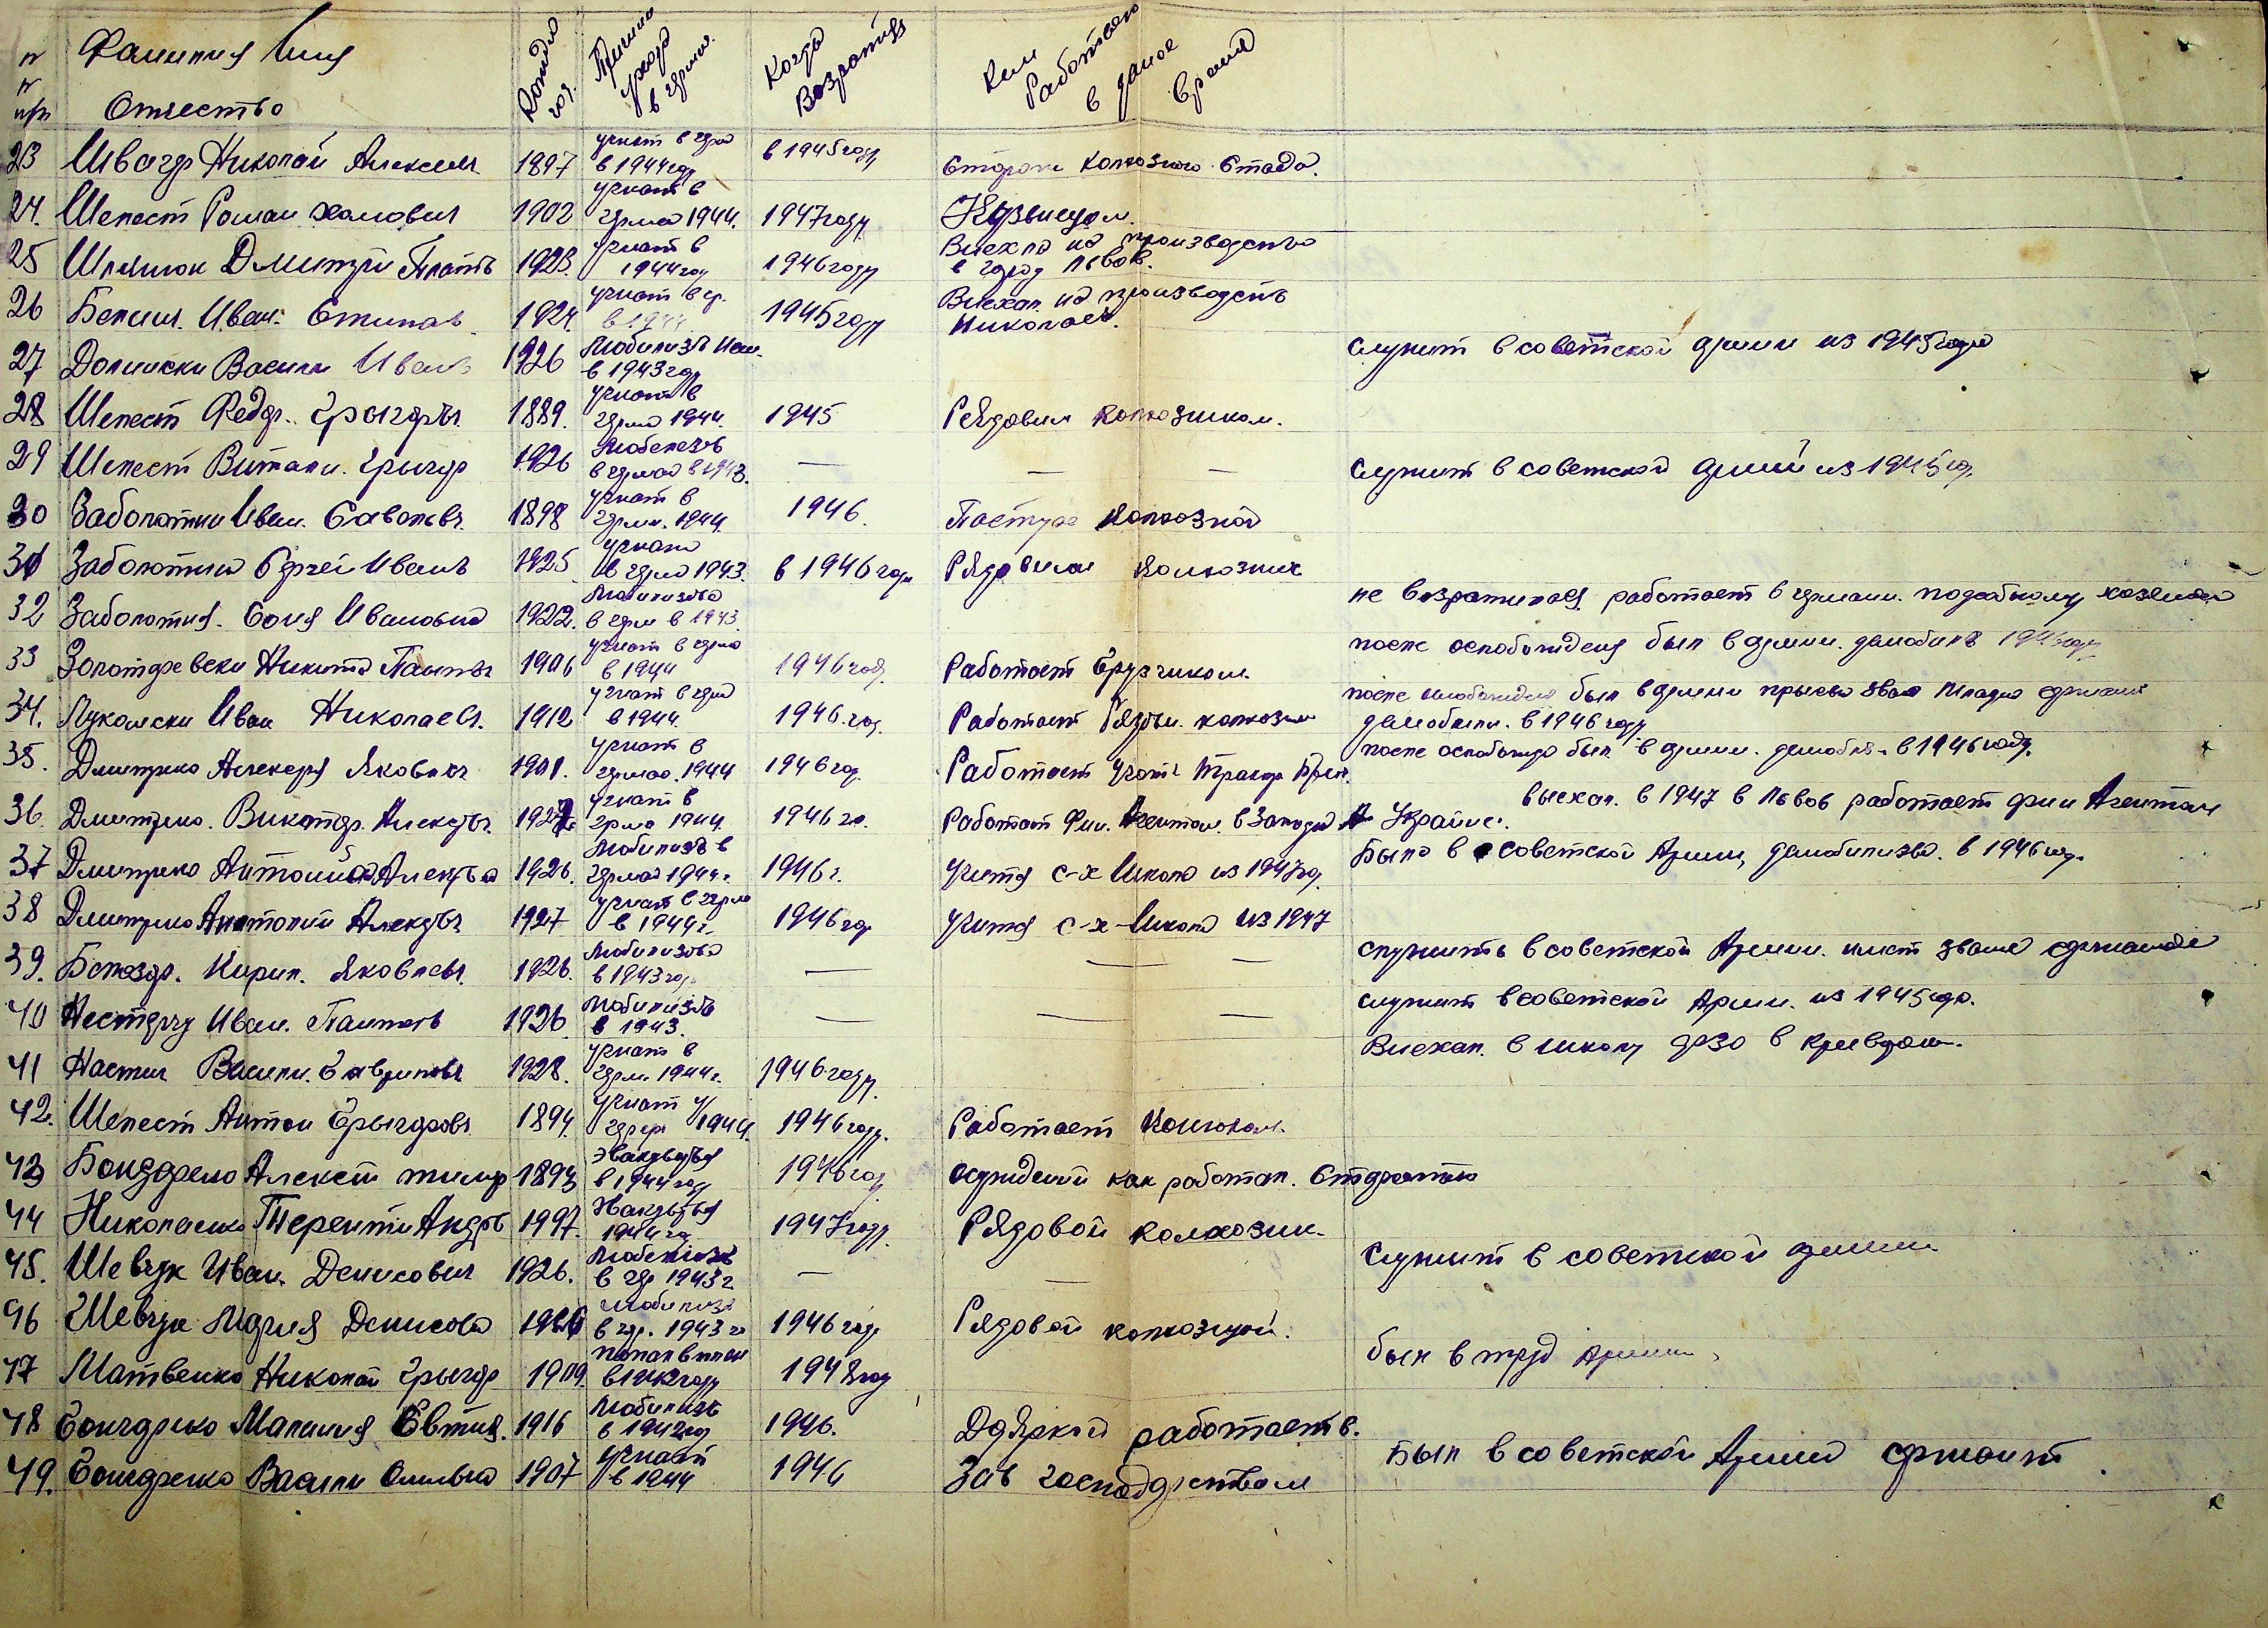 Фамилия Имя Отчество
Рожде год.
Причина ухода в герман.
Когда Возратился
Кем Работает в даное время
23 Швагер Николай Алексеев. 1897 угнат в гер в 1944 год в 1945 году Сторож колхозного стада.
24. Шепест Роман Хомович 1902 угнат в герма 1944. 1947 году Кузнецом.
25 Дмитрий 1923. угнат в 1944 год 1946 году Виехал на производство в город Львов.
26 Иван. Степанов. 1924. угнат в гер. в 1944. 1945 году Виехал. на производств Николаев.
27 Долински Васили Иванов 1926 Мобилизв в 1943 год служит в советской армии из 1945 года
28 Шепест Федор. Грыгоръ. 1889. угнат в герма 1944. 1945 Рядовим колхозником.
29 Шепест Витали. Григор 1926 в герма в 1943. — — — служит в советской армии из 1945 год.
30 Заболотни Иван. Савельев. 1898 угнат в герм. 1944. 1946. Пастух колхозной
31 Заболотни Сергей Иванъ 1925 угнат в герма 1943. в 1946 году Рядовим колхозник
32 Заболотня. Соня Ивановна 1922. Мобилизова в герм в 1943. не возратилась работает в герман. подсобному хозяйств
33 Никита Пантел 1906 угнат в герма в 1944 1946 год. Работает Грузчиком. после освобождения был в армии. демобилз 1945 году
34. Лукомски Иван Николаев. 1912 угнат в герма в 1944. 1946. год. Работает Рядов. колхозни после освобождения был в армии присво звание младш сержант
демобили. в 1946 году
35. Дмитренко Алексеря Яковлев 1901. угнат в герман. 1944 1946 год Работает Учотч трактор бриг. после освобожде был в армии. демобил. в 1946 году.
36. Дмитренко. Виктор. Алексев. угнат в герма 1944. 1946 го. Работает Фин. Агентом. в Западн Украине. выехал. в 1947 в Львов работает фин Агентом
37 Дмитренко Антонина 1926. Мобилизв в герма 1944 г. 1946 г. учится с-х Школа из 1947 год. Была в советской Армии, демобилизва. в 1946 году.
38 Дмитренко Анатолий 1927 угнат в герма в 1944 г. 1946 год учится с-х Школа из 1947
39. Кирил. Яковлев. 1926. Мобилизова в 1943 год. — — — служить в советской Армии. имеет звание сержантое
40 Нестерчу Иван. Пантел 1926 Мобилизв в 1943. — — — служит в советской Армии. из 1945 года.
41 Настич Васили. Гаврилов. 1928. угнат в герм. 1944 г. 1946 году. Виехал. в школу ФЗО в Кривдом.
42. Шепест Антон Грыгоров. 1894. угнат у герман 1944. 1946 году. Работает Конюхом.
43 Бондаренко Алексей 1893 Эвакуався в 1944 год 1946 год осуждений как работал. Старостою
44 Николаенко Теренти Андрев 1997. Эвакувався 1944 го 1947 году. Рядовой колхозник.
45. Шевчук Иван. Денисович 1926. в гер 1943 г. — — служит в советской армии
46 Шевчук Мария Денисова Мобилизв в гер. 1943 го 1946 год. Рядовой колхозницой.
47 Матвенко Николай Грыгор 1909. попал в плен в 1942 году 1948 год был в труд армии.
48 Бондаренко Малания Евтих. 1916 Мобилизв в 1942 год 1946. Дояркой работаетъ.
49. Бондаренко Васили 1907 угнат в 1944 1946 Зав господарством Был в советской Армии сержант.